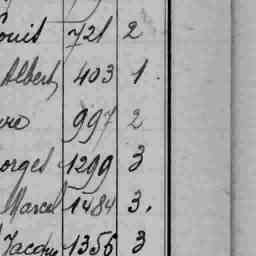 ouis 721 2
Albert 403 1.
997 2
orges 1299 3
Marcel 1484 3.
Jacques 1356 3